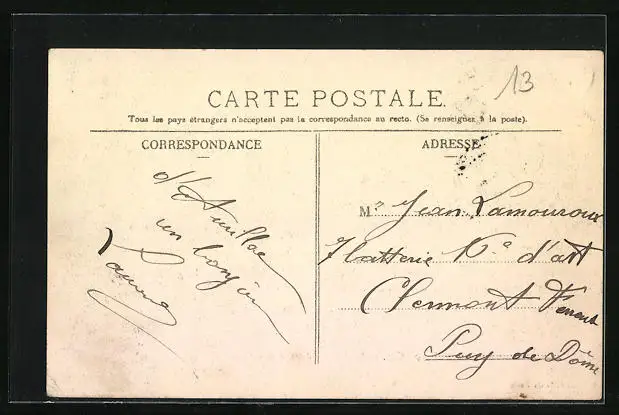 13
CARTE POSTALE.
Tous les pays étrangers n'acceptent pas la correspondance au recto. (Se renseigner à la poste).
CORRESPONDANCE
ADRESSE
d'Aurillac
un bonjour
Mr Jean Lamouroux
d'art
Clermont Ferrand
Puy de Dôme